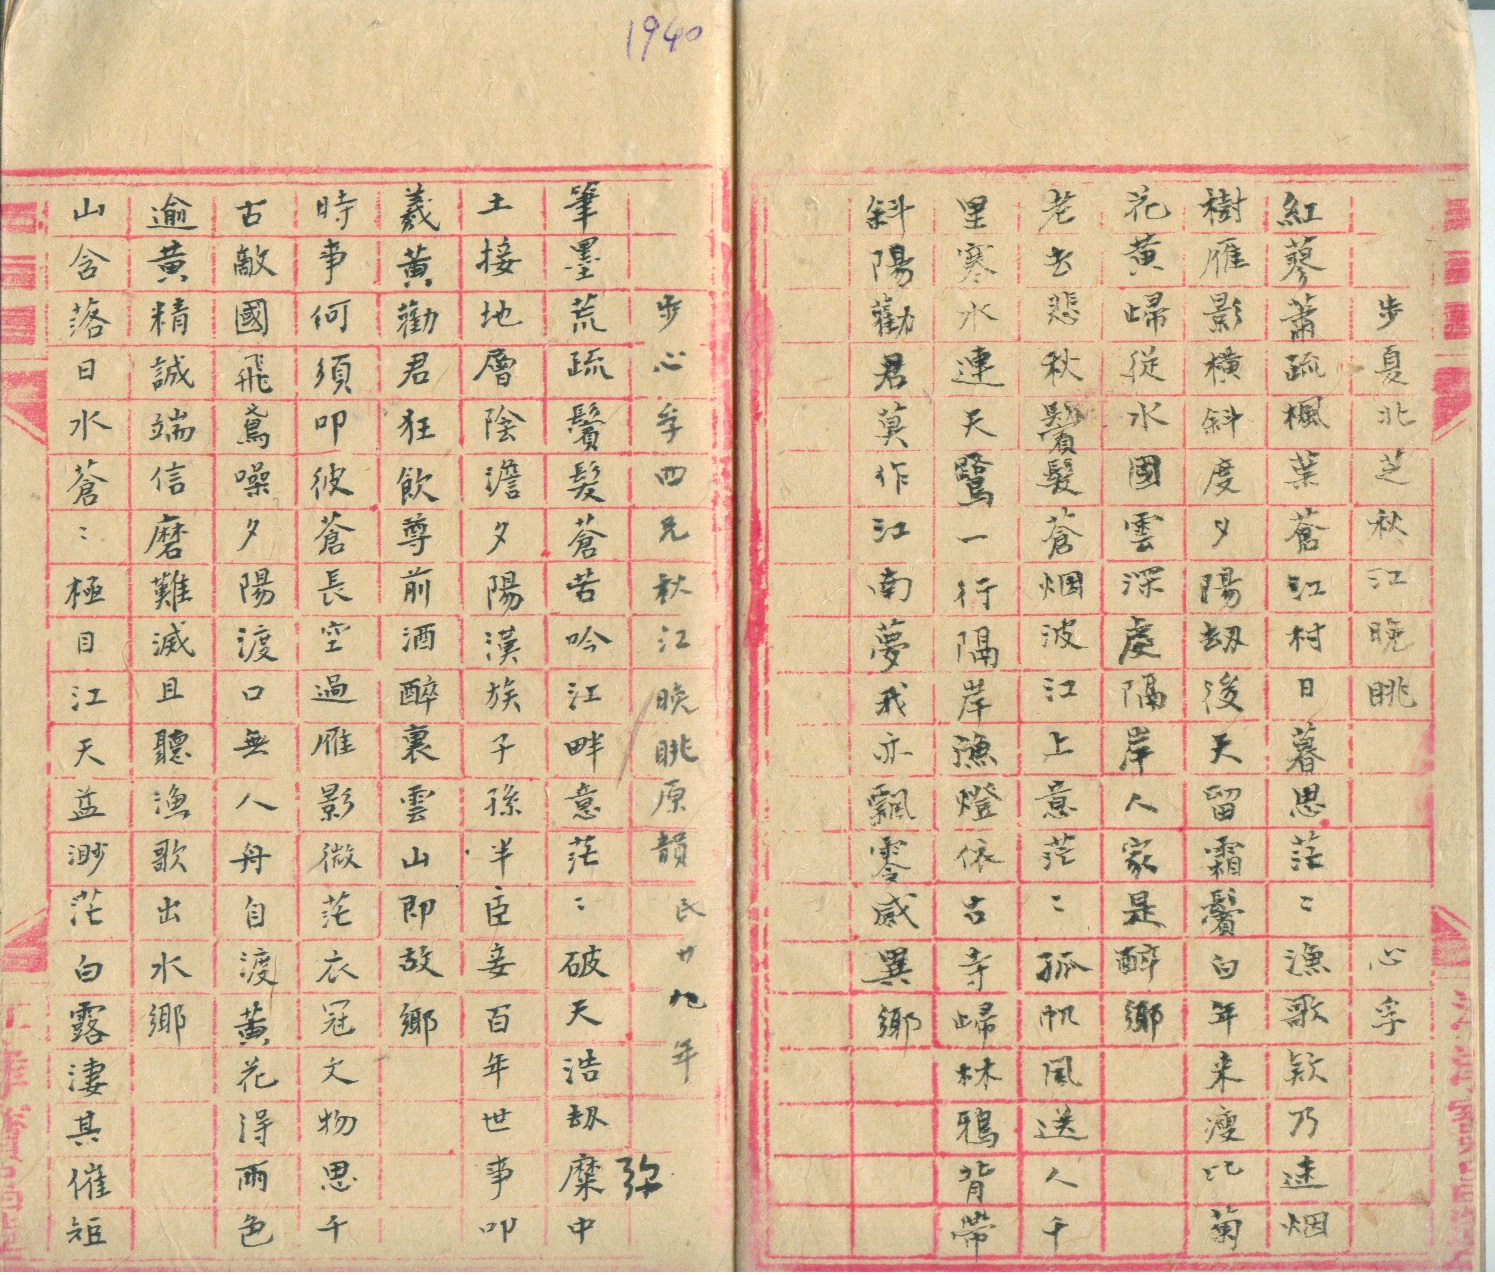 1940
步夏北芝秋江晚眺 心孚
紅蓼蕭疏楓葉蒼江村日暮思茫〻漁歌欵乃迷烟
樹雁影橫斜度夕陽劫後天留霜鬢白年来瘦比菊
花黃歸從水國雲深處隔岸人家是醉鄉
老去悲秋鬢髮蒼烟波江上意茫〻孤帆風送人千
里寒水連天鷺一行隔岸漁燈依古寺歸林鴉背帶
斜陽勸君莫作江南夢我亦飄零感異鄉
步心孚四兄秋江晚眺原韻民廿九年
筆墨荒疏鬢髮蒼苦吟江畔意茫〻破天浩劫糜中
弥
土接地層陰澹夕陽漢族子孫半臣妾百年世事叩
羲黃勸君狂飲尊前酒醉裏雲山即故鄉
時事何須叩彼蒼長空過雁影微茫衣冠文物思千
古敵國飛鳶噪夕陽渡口無人舟自渡黃花浔雨色
逾黃精誠端信磨難滅且聽漁歌出水鄉
山含落日水蒼〻極目江天益渺茫白露淒其催短